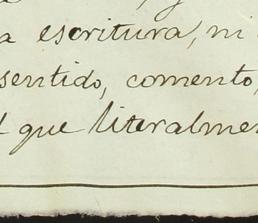 a escritura, ni
sentido, comento,
l que literalmen